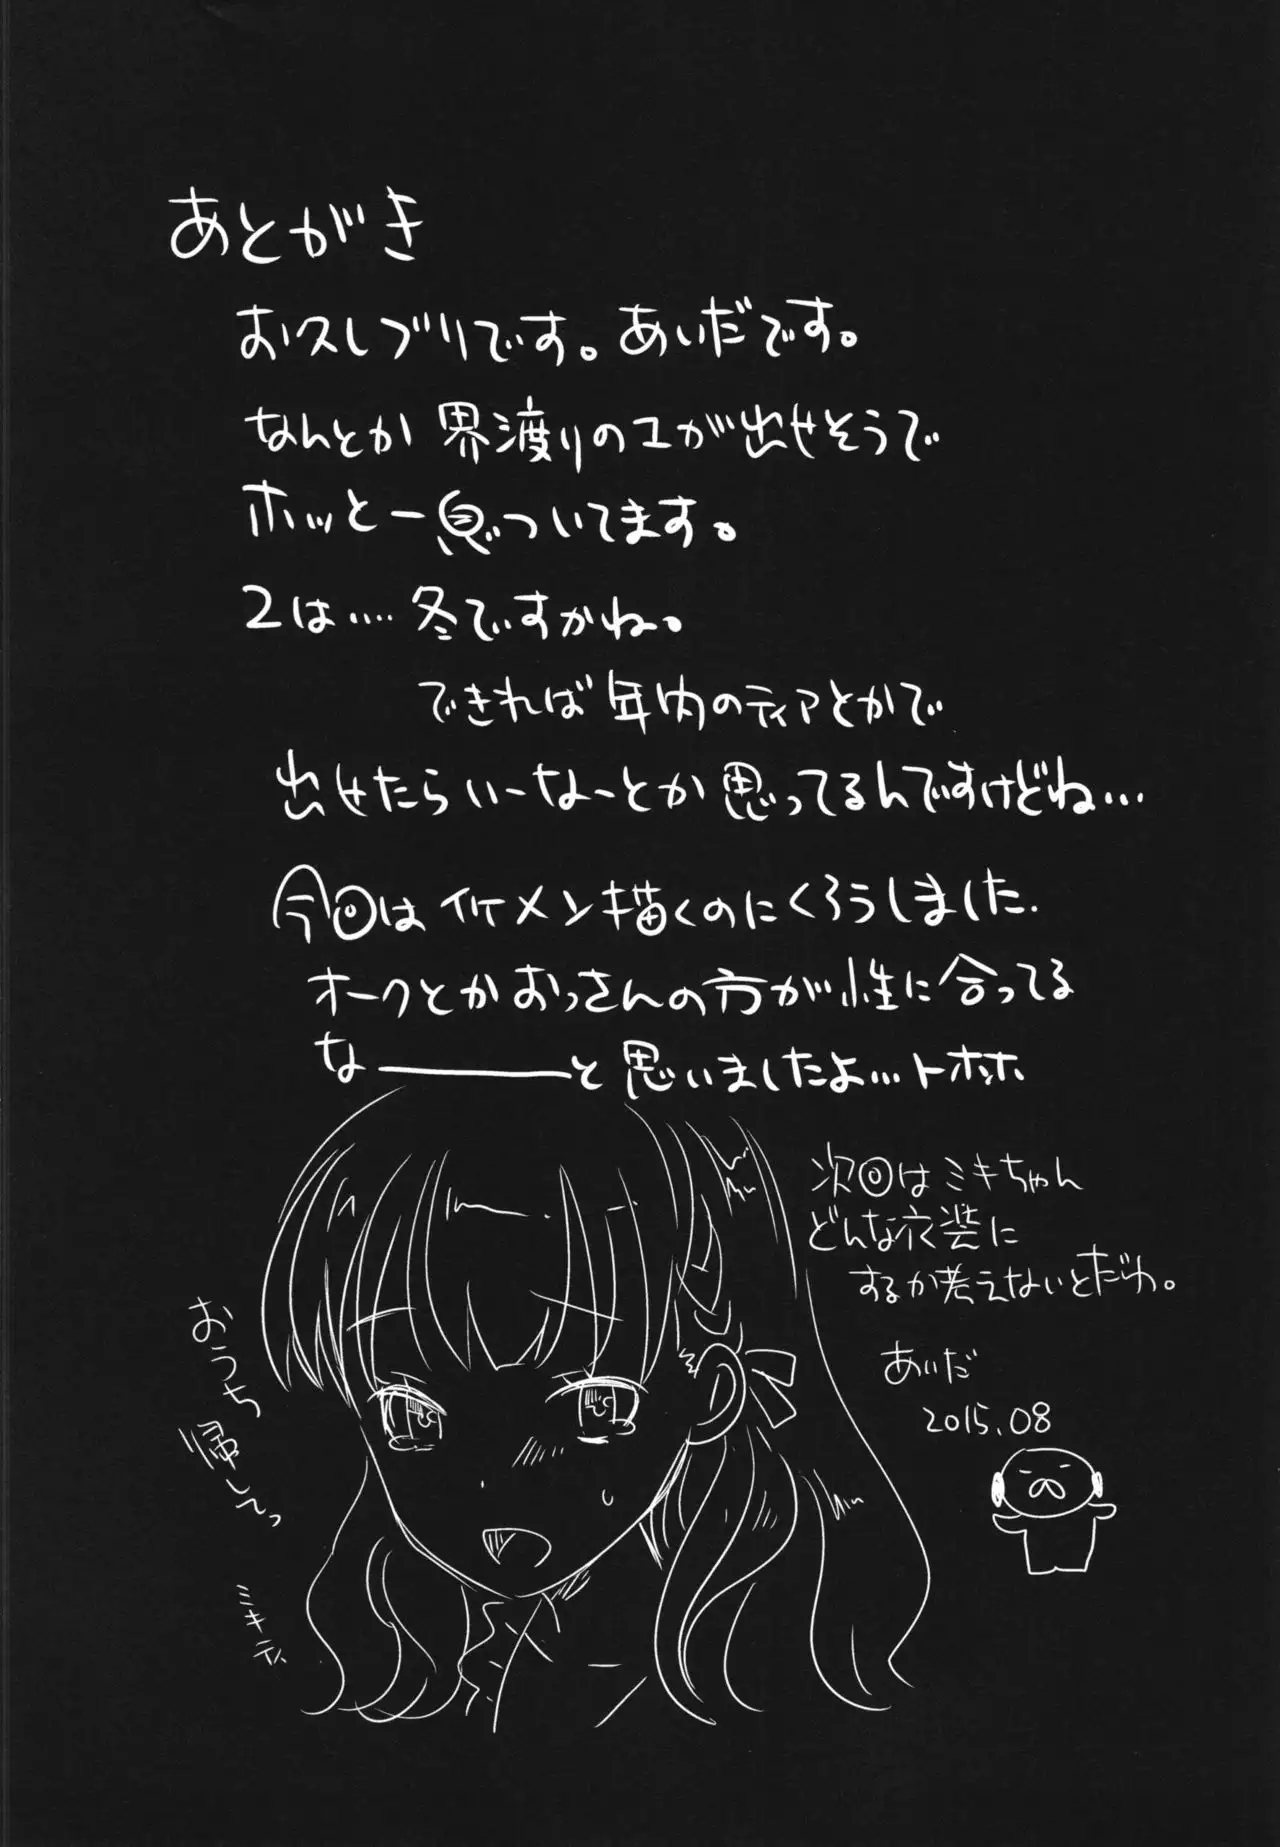 あとがき
お久しブリです。あいだです。
なんとか界渡りのユが出せそうで
ホッと一息ついてます。
2は‥‥冬ですかね。
できれば年内のティアとかで
出せたらいーなーとか思ってるんですけどね…
今回はイケメン描くのにくろうしました.
オークとかおっさんの方が性に合ってる
な――――と思いましたよ…トホホ
次回はミキちゃん
どんな衣装に
するか考えないとだわ。
あいだ
2015.08
おうち
帰してっ
ミキティ